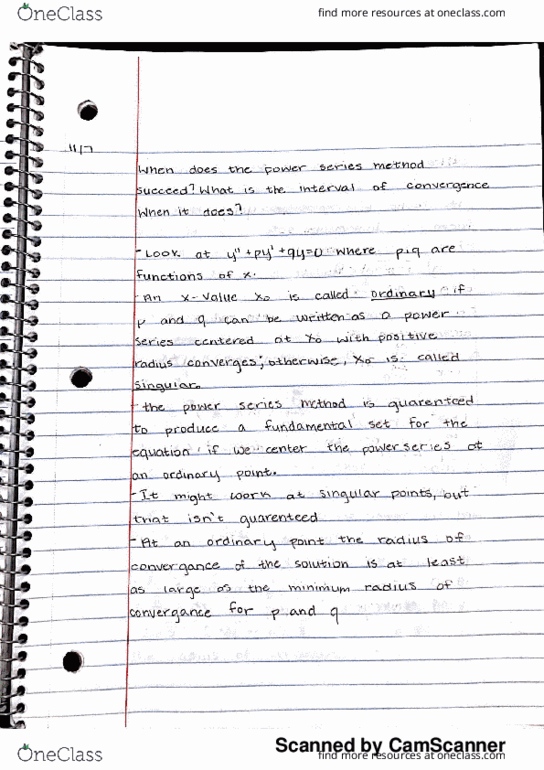 OneClass
find more resources at oneclass.com
11/7
When does the power series method
succeed? What is the interval of convergence
when it does?
- Look at y'' + py' + qy=0 where p,q are
functions of x.
- An x-value x₀ is called ordinary if
p and q can be written as a power
series centered at x₀ with positive
radius converges; otherwise, x₀ is called
singular.
- the power series method is guarenteed
to produce a fundamental set for the
equation if we center the power series at
an ordinary point.
- It might work at singular points, but
that isn't guarenteed
- At an ordinary point the radius of
convergance of the solution is at least
as large as the minimum radius of
convergance for p and q
Scanned by CamScanner
OneClass
find more resources at oneclass.com